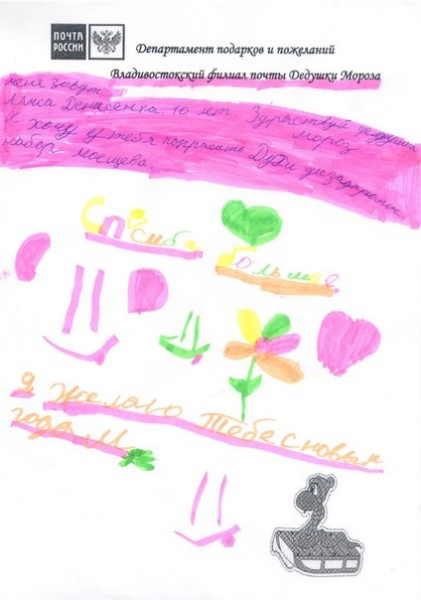 ПОЧТА
РОССИИ
Департамент подарков и пожеланий
Владивостокский филиал почты Дедушки Мороза
меня завут
Алиса Денисенка. 10 лет Здраствуй дедушка
мороз
Я хочу у тебя попрасить
набор
Спасиба
большое
Я желаю Тебе с новым
годам